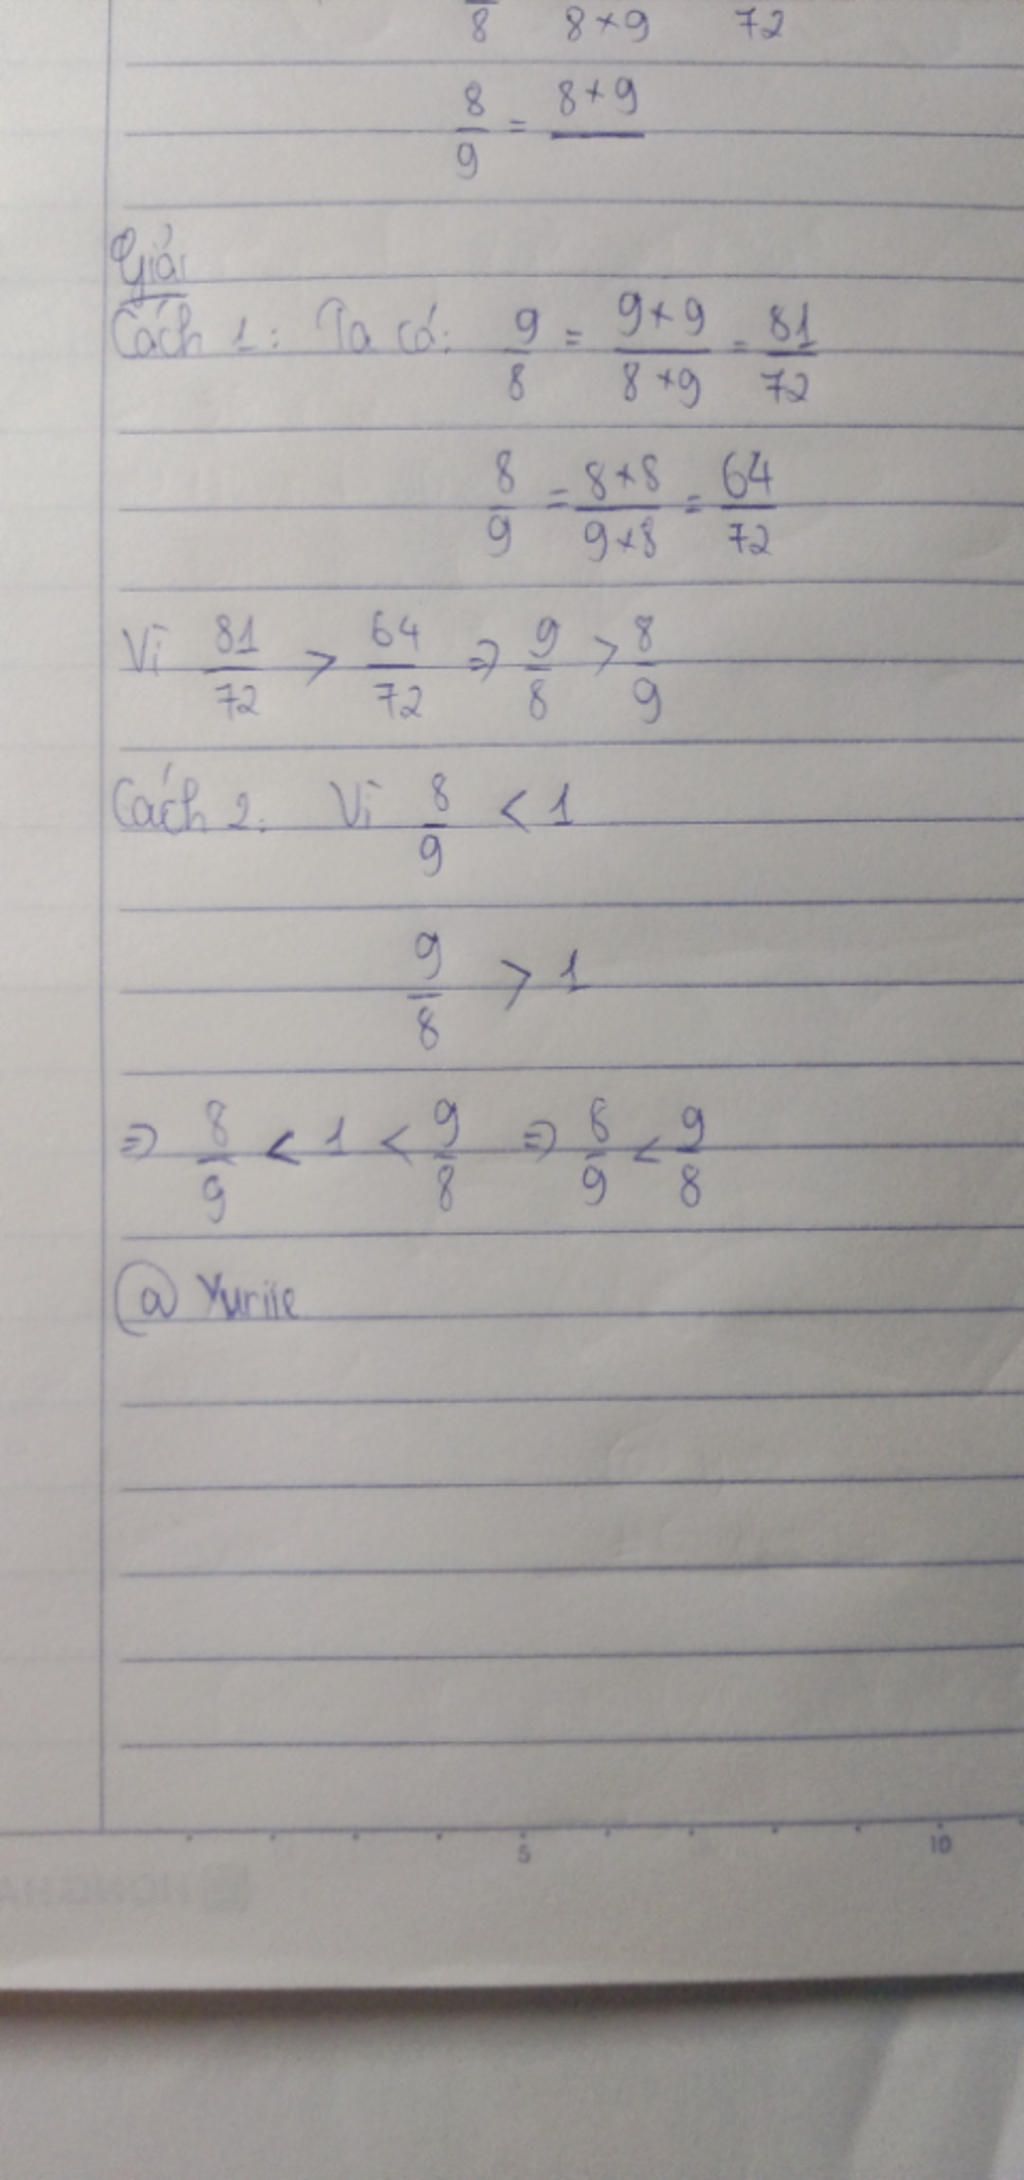 8 8×9 72
8/9 = 8×9/
Giải
Cách 1: Ta có: 9/8 = 9×9/8×9 = 81/72
8/9 = 8×8/9×8 = 64/72
Vì 81/72 > 64/72 => 9/8 > 8/9
Cách 2: Vì 8/9 < 1
9/8 > 1
=> 8/9 < 1 < 9/8 => 8/9 < 9/8
@ Yuriie
5 10